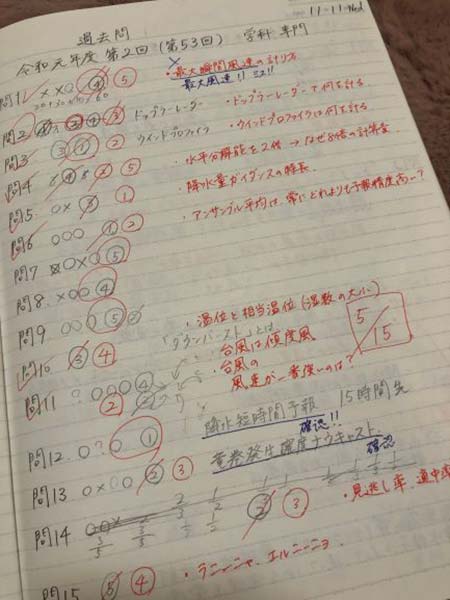 11-11-Wed
過去問
令和元年度 第2回 (第53回) 学科 専門
問1 × × ○ ④ ⑤
・最大瞬間風速の計り方
最大風速!! ミス!!
問2 ③ ドップラーレーダー ・ドップラーレーダーで何を計る
問3 ③ ① ② ウインドプロファイラ ・ウインドプロファイラは何を計る
問4 ⑤ ・水平分解能を2倍 → なぜ8倍の計算量
問5 ○ × ③ ① ・降水量ガイダンスの特長
問6 ○○○ ① ② ・アンサンブル平均は、常にどれよりも予報精度高い?
問7 ○ × ○ ⑤
問8 × ○○ ④
問9 ○○○ ⑤
・温位と相当温位 (湿数の大小)
問10 ③ ④ 「ダウンバースト」とは
・台風は傾度風
5/15
問11 ? ○○○ ④ ②
・台風の
風速が一番強いのは?
問12 ○ ? ○ ①
降水短時間予報 15時間先
確認!!
問13 ○ × ○○ ② ③
竜巻発生確度ナウキャスト
確認
問14 ② ③
・見逃し率、適中率
問15 ⑤ ④ ・ラニーニャ、エルニーニョ